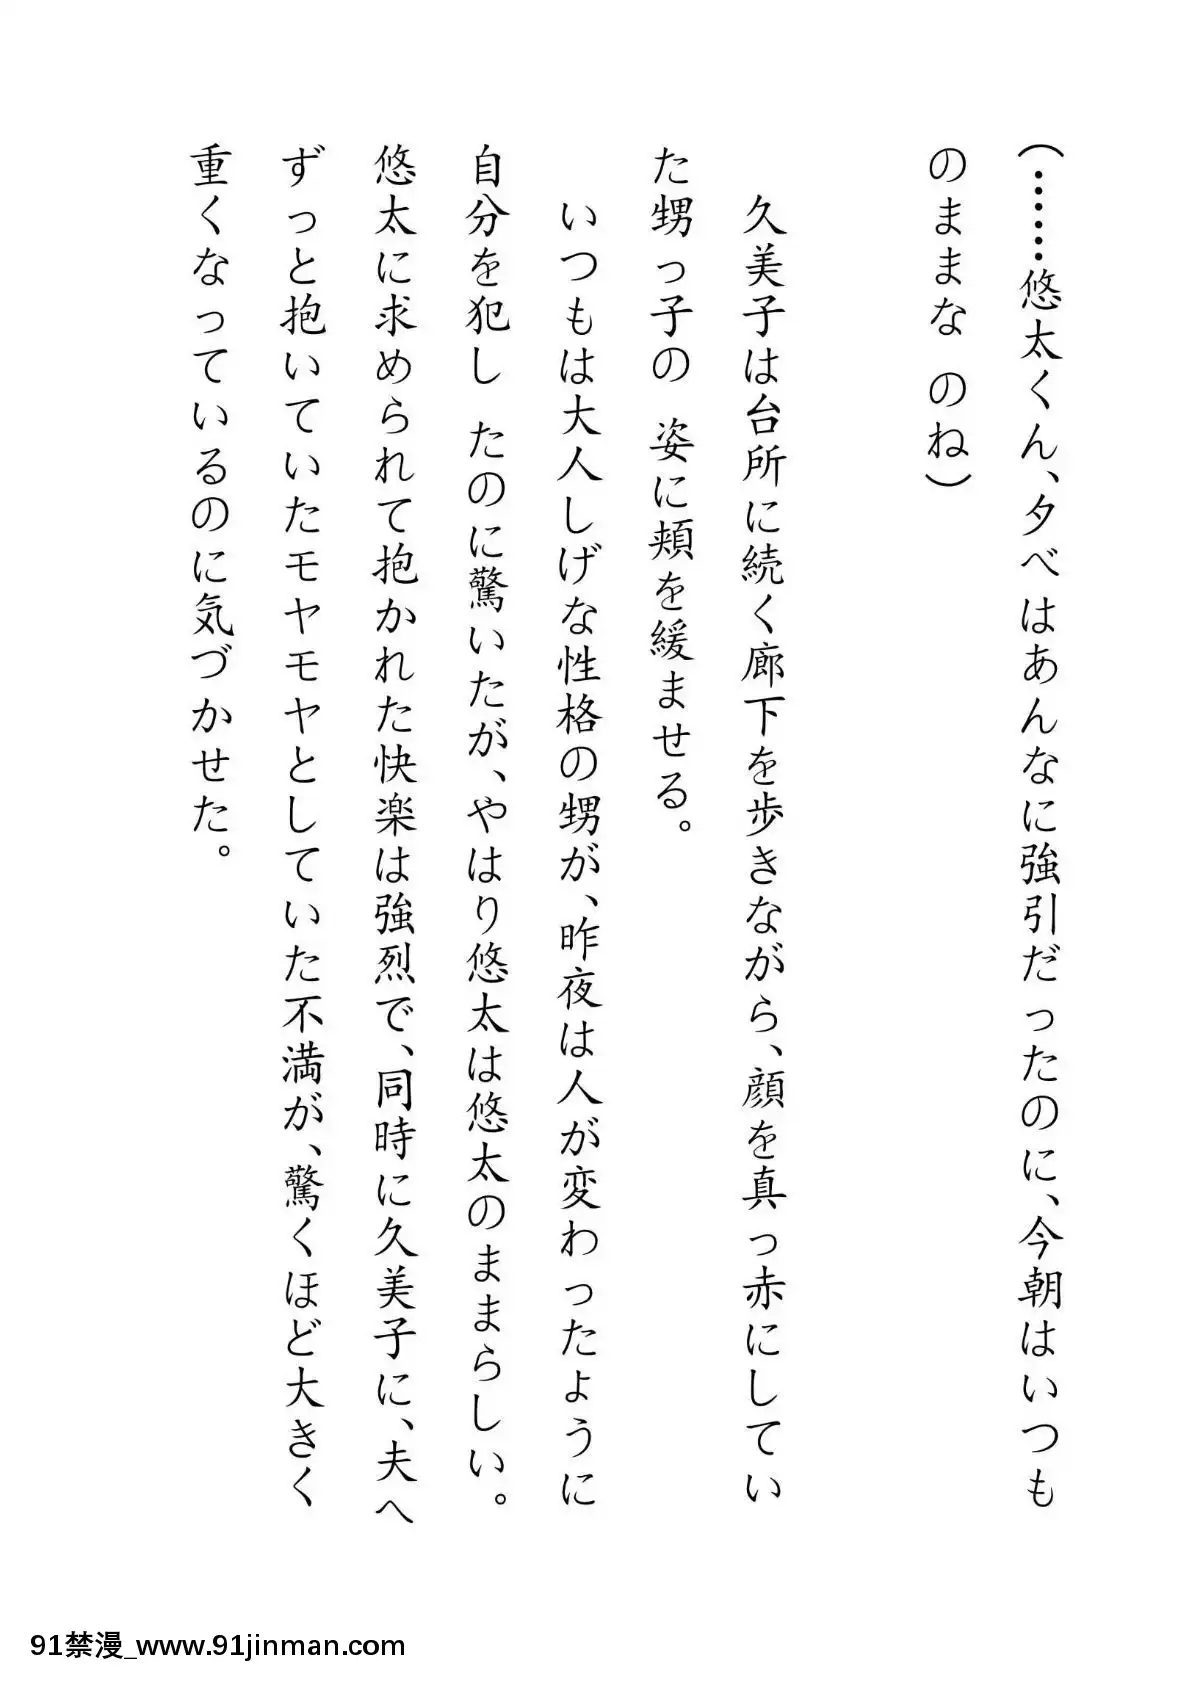 （……悠太くん、夕べはあんなに強引だったのに、今朝はいつも
のままな のね）
久美子は台所に続く廊下を歩きながら、顔を真っ赤にしてい
た甥っ子の 姿に頬を緩ませる。
いつもは大人しげな性格の甥が、昨夜は人が変わったように
自分を犯し たのに驚いたが、やはり悠太は悠太のままらしい。
悠太に求められて抱かれた快楽は強烈で、同時に久美子に、夫へ
ずっと抱いていたモヤモヤとしていた不満が、驚くほど大きく
重くなっているのに気づかせた。
91禁漫_www.91jinman.com